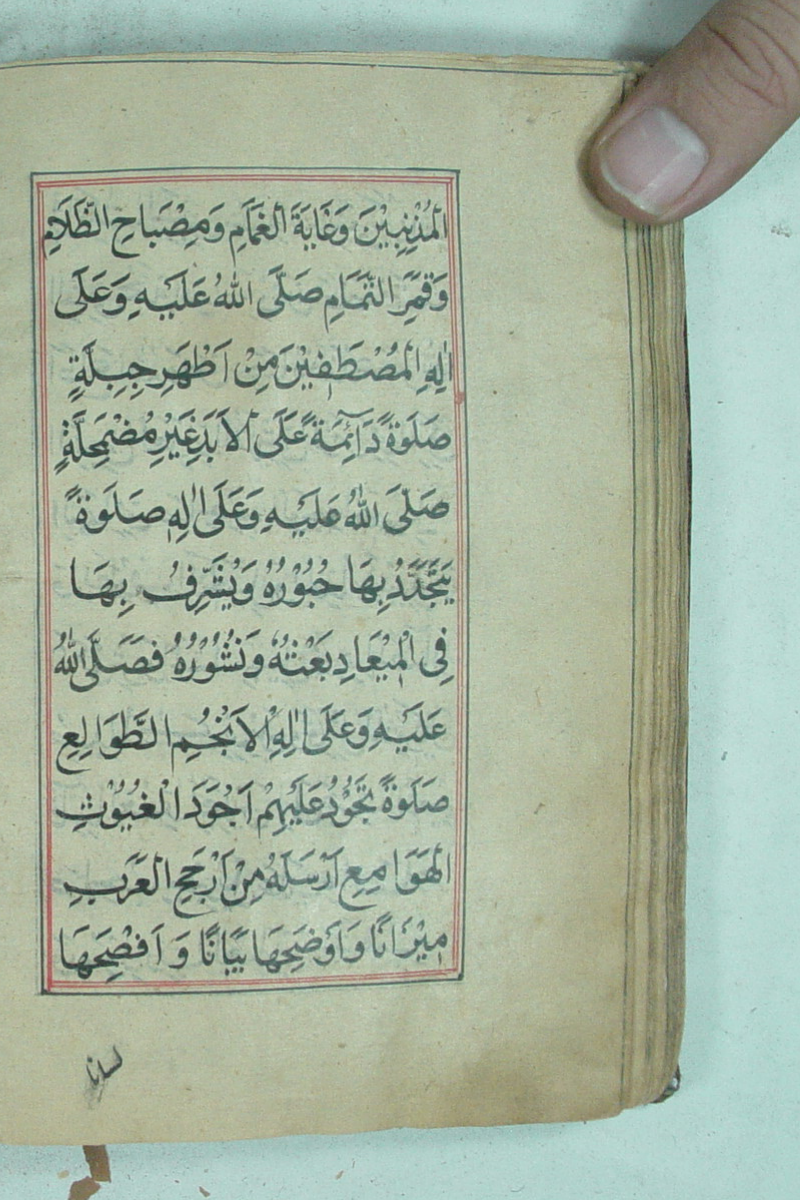 الْمُذْنِبِيْنَ وَغَايَةَ الْغَمَامِ وَمِصْبَاحِ الظَّلَامِ
وَقَمَرِ التَّمَامِ صَلَّى اللهُ عَلَيْهِ وَعَلَى
اٰلِهِ الْمُصْطَفِيْنَ مِنْ اَطْهَرِ جِبِلَّةٍ
صَلٰوةً دَآئِمَةً عَلَى الْاَبَدِ غَيْرِ مُضْمَحِلَّةٍ
صَلَّى اللهُ عَلَيْهِ وَعَلَى اٰلِهٖ صَلٰوةً
يَتَجَدَّدُ بِهَا حُبُوْرُهُ وَيُشَرِّفُ بِهَا
فِى الْمِيْعَادِ بَعْثَهُ وَنُشُوْرُهُ فَصَلَّى اللهُ
عَلَيْهِ وَعَلَى اٰلِهِ الْاَنْجُمِ الطَّوَالِعِ
صَلٰوةً تَجُوْدُ عَلَيْهِمْ اَجْوَدَ الْغُيُوْثِ
الْهَوَامِعِ اَرْسَلَهُ مِنْ اَرْجَحِ الْعَرَبِ
مِيْزَانًا وَاَوْضَحِهَا بَيَانًا وَ اَفْصَحِهَا
لسانا